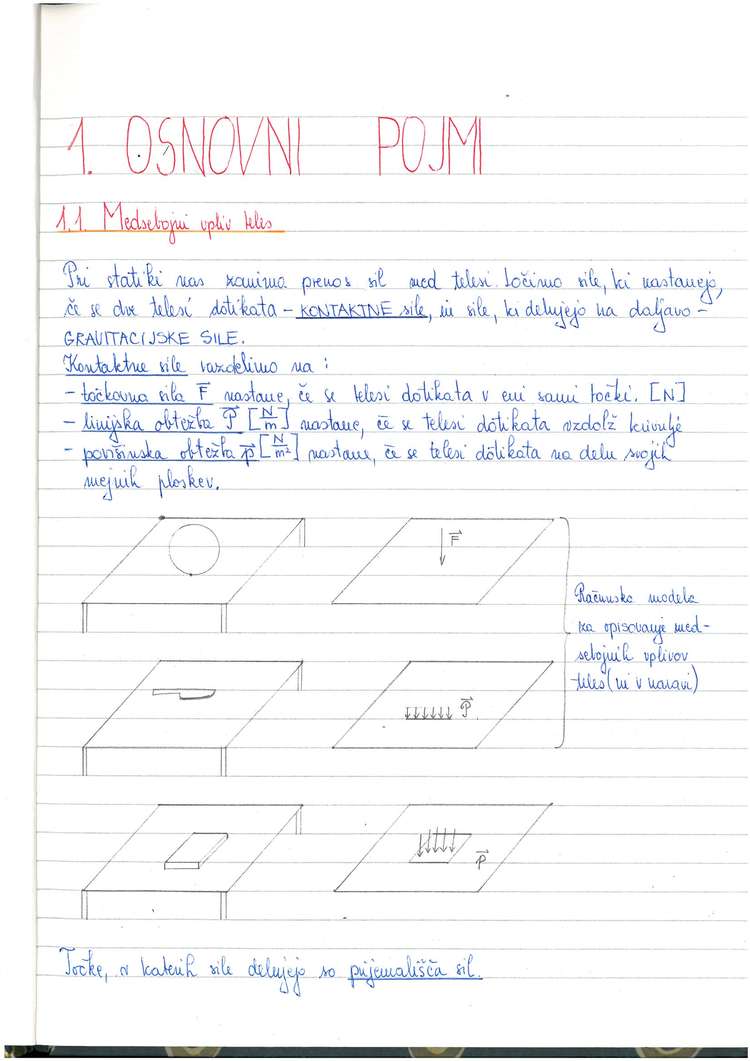 1. OSNOVNI POJMI
1.1. Medsebojni vpliv teles
Pri statiki nas zanima prenos sil med telesi. Ločimo sile, ki nastanejo,
če se dve telesi dotikata – KONTAKTNE sile, in sile, ki delujejo na daljavo –
GRAVITACIJSKE SILE.
Kontaktne sile razdelimo na:
- točkovna sila F⃗ nastane, če se telesi dotikata v eni sami točki. [N]
- linijska obtežba 𝒫⃗ [N/m] nastane, če se telesi dotikata vzdolž krivulje
- površinska obtežba p⃗ [N/m²] nastane, če se telesi dotikata na delu svojih
mejnih ploskev.
F⃗
Računska modela
za opisovanje med-
sebojnih vplivov
teles (ni v naravi)
𝒫⃗
p⃗
Točke, v katerih sile delujejo so prijemališča sil.